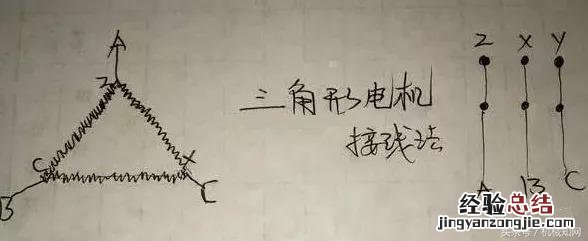 A
Z
C
X
B
C
三角形电机
接线法
Z X Y
A B C
经验总结
jingyanzongjie.com
头条号/机械知网